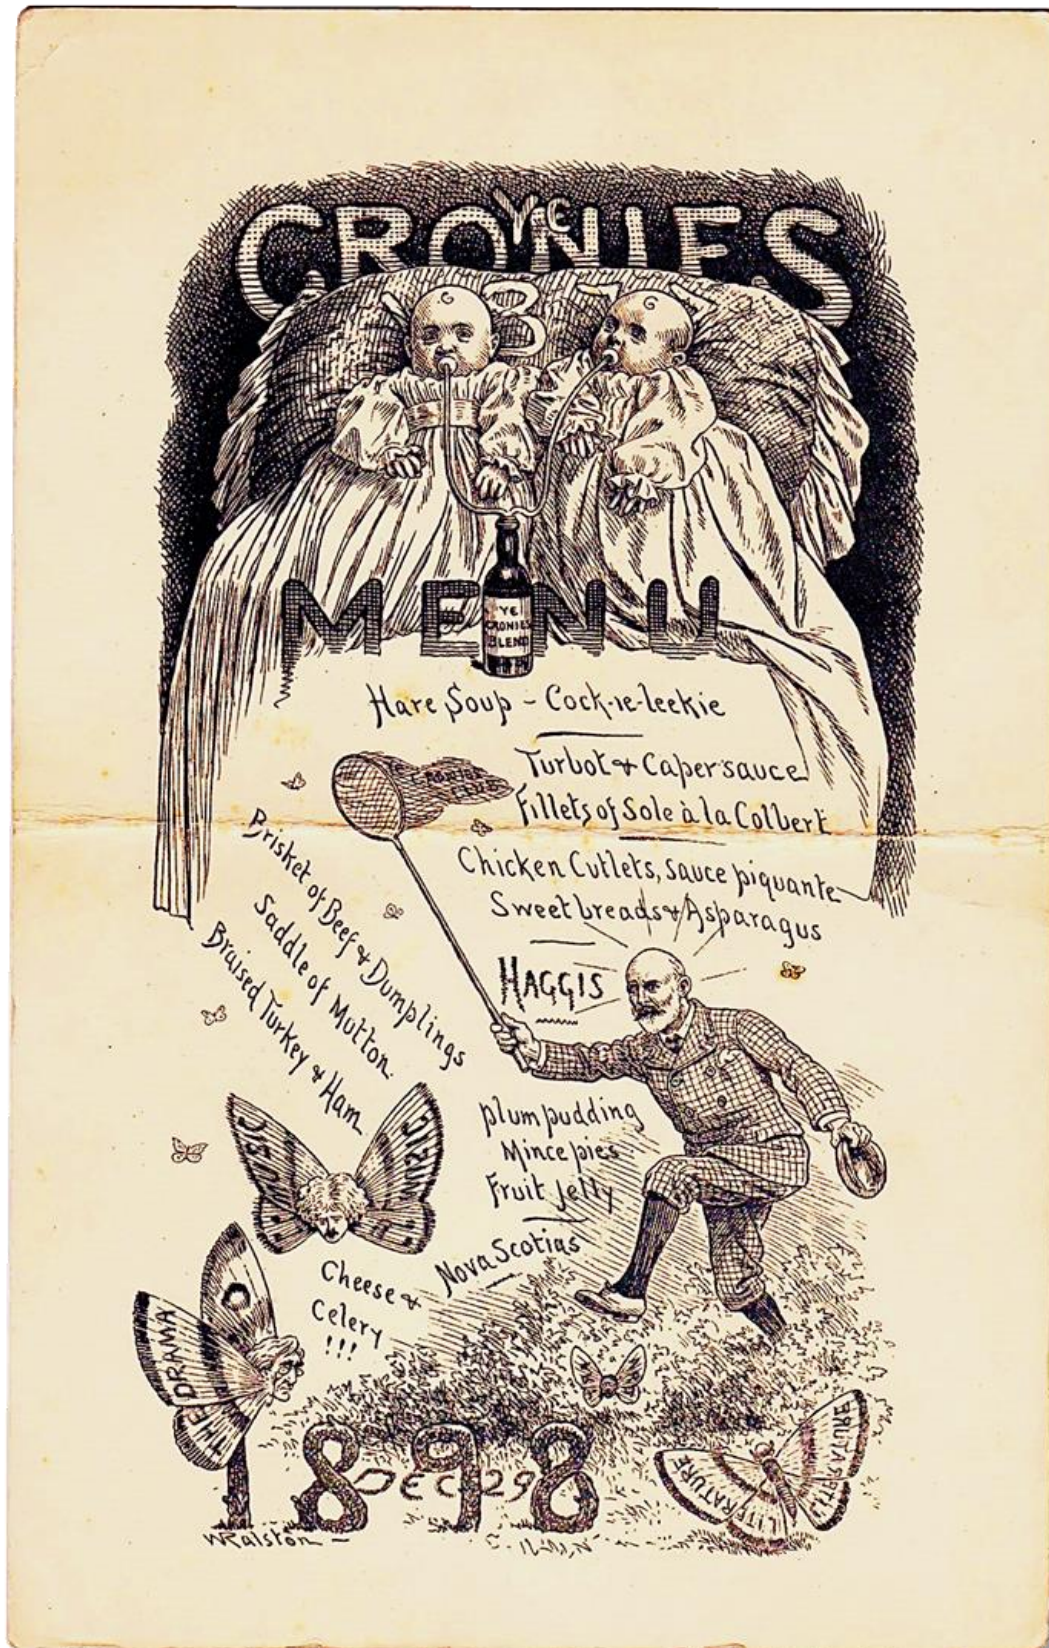 YE
CRONIES
G
G
MENU
YE
CRONIES
BLEND
Hare Soup - Cock-ie-leekie
CRONIES
CLUB
Turbot & Caper sauce
Fillets of Sole à la Colbert
Chicken Cutlets, sauce piquante
Sweetbreads & Asparagus
HAGGIS
Brisket of Beef & Dumplings
Saddle of Mutton.
Braised Turkey & Ham
plum pudding
Mince pies
Fruit Jelly
Nova Scotias
MUSIC
MUSIC
Cheese &
Celery
!!!
THE DRAMA
LITERATURE
LITERATURE
1898
DEC. 29
WRalston